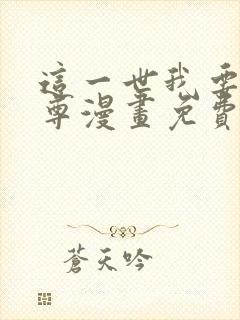 這一世我要
尊漫畫免費
蒼天吟